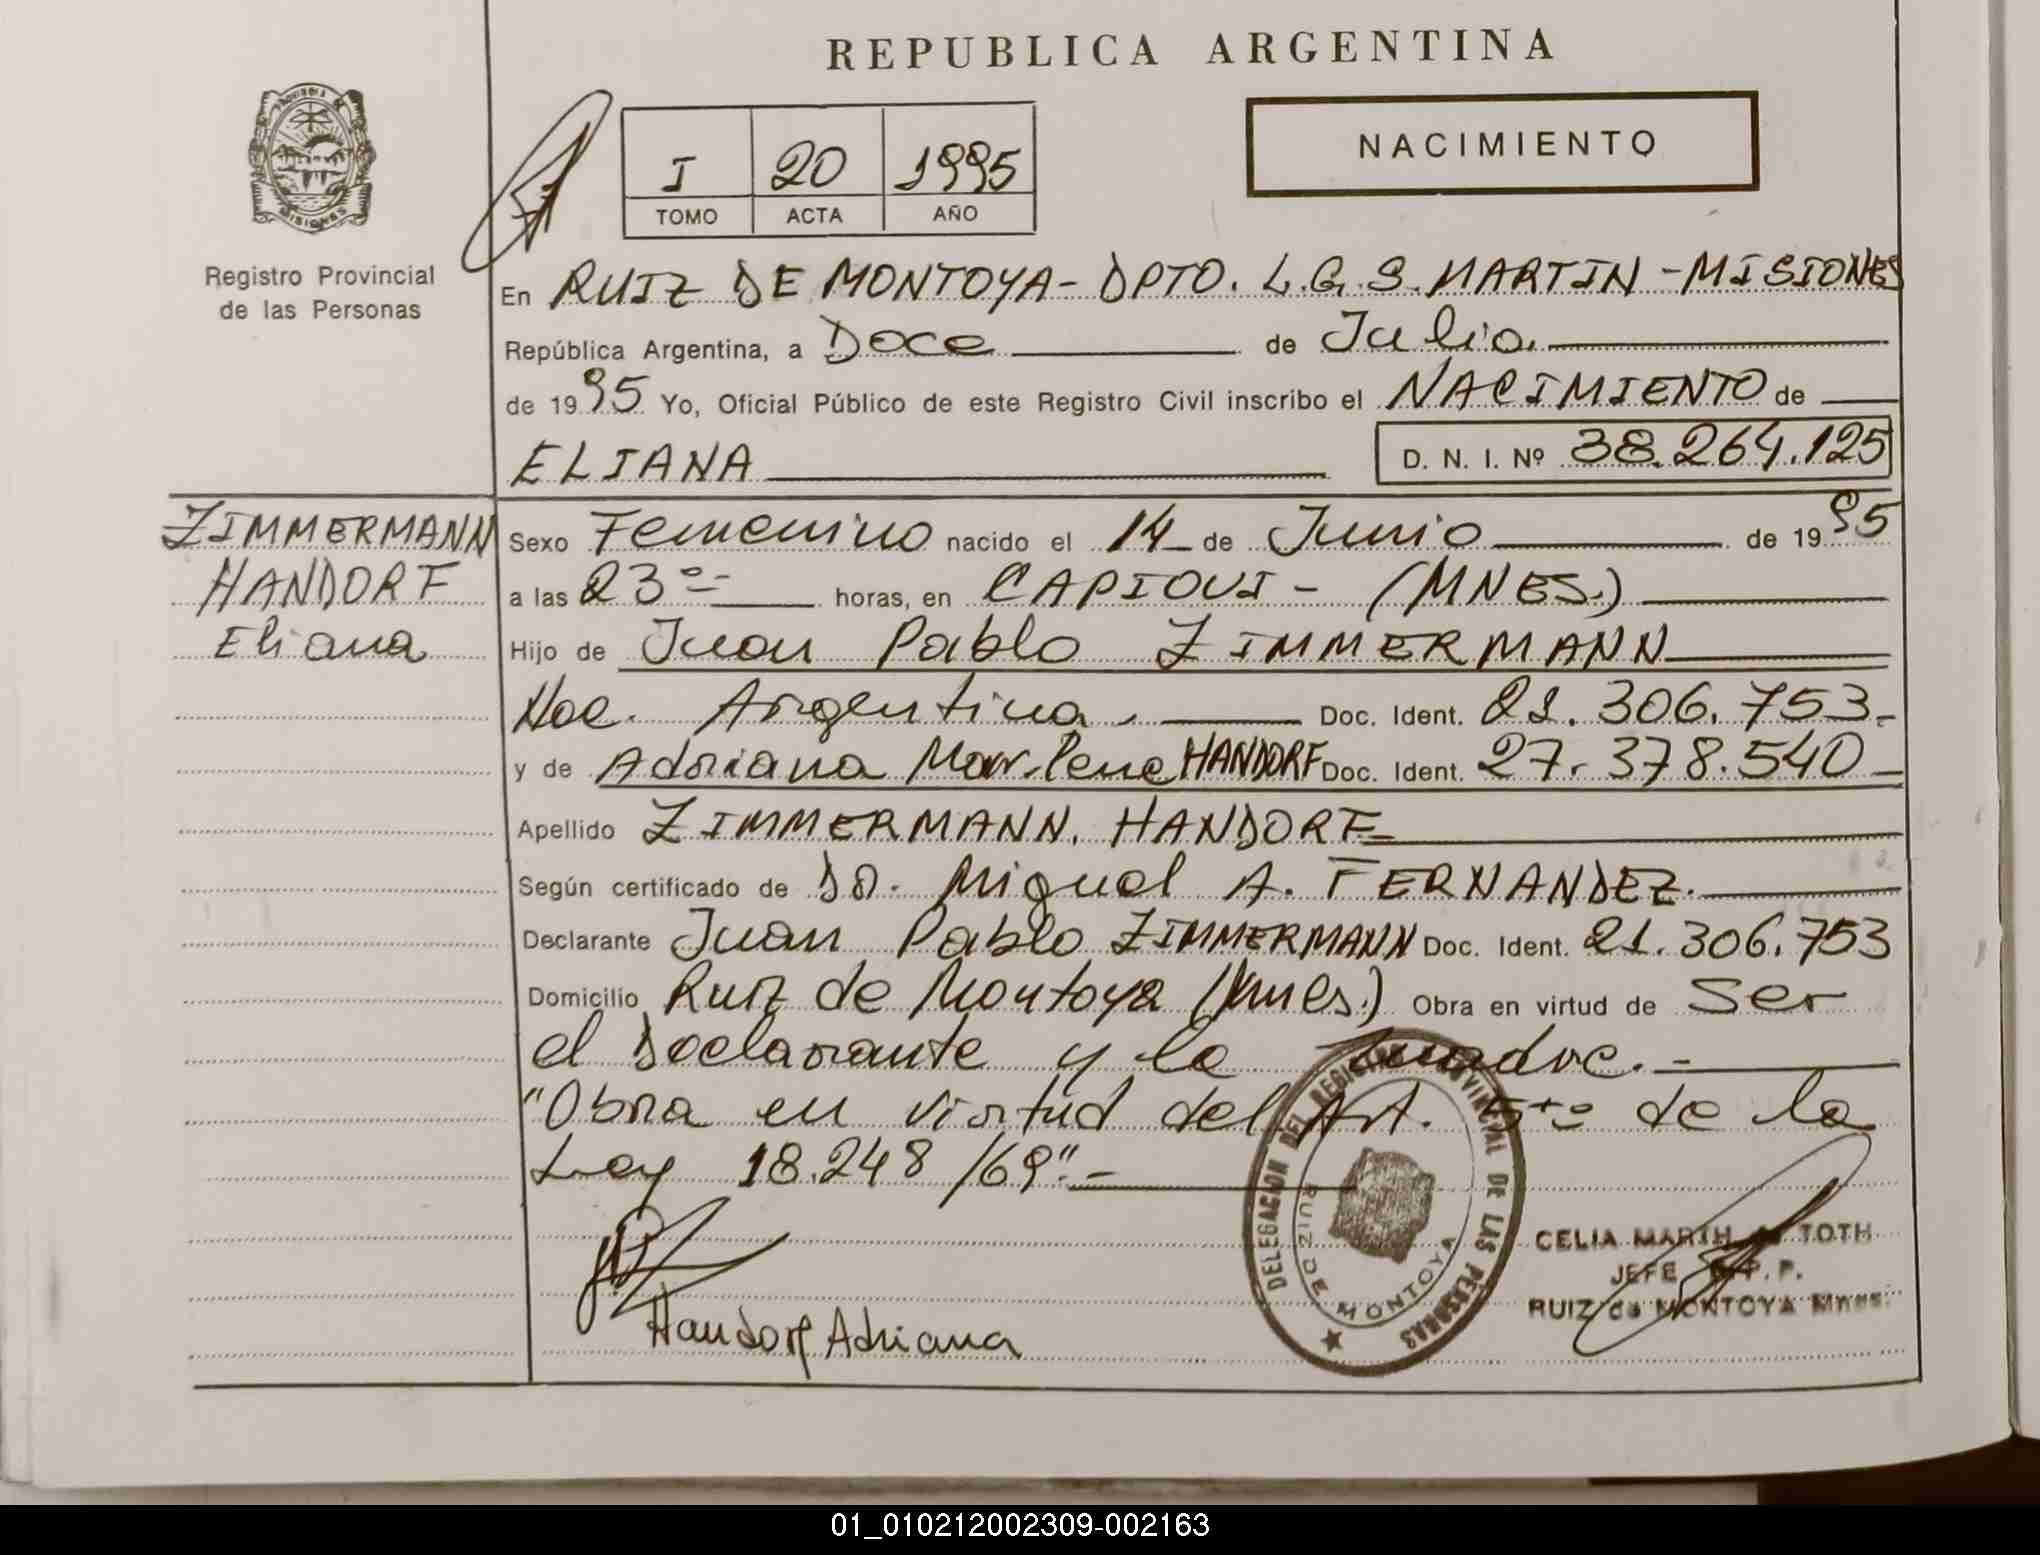 REPUBLICA ARGENTINA
PROVINCIA DE
MISIONES
Registro Provincial
de las Personas
I 20 1995
TOMO ACTA AÑO
NACIMIENTO
En RUIZ DE MONTOYA - DPTO. L.G.S. MARTIN - MISIONES
República Argentina, a Doce de Julio.
de 1995 Yo, Oficial Público de este Registro Civil inscribo el NACIMIENTO de
ELIANA D. N. I. Nº 38.264.125
ZIMMERMANN
HANDORF
Eliana
Sexo Femenino nacido el 14 de Junio de 1995
a las 23º= horas, en CAPIOVI - (MNES.)
Hijo de Juan Pablo ZIMMERMANN
Nac. Argentina. Doc. Ident. 21.306.753.-
y de Adriana Marlene HANDORF Doc. Ident. 27.378.540
Apellido ZIMMERMANN HANDORF=
Según certificado de Dr. Miguel A. FERNANDEZ.
Declarante Juan Pablo ZIMMERMANN Doc. Ident. 21.306.753
Domicilio Ruiz de Montoya (Mnes.) Obra en virtud de Ser
el Declarante y la madre.-
"Obra en virtud del Art. 5to de la
Ley 18.248/69".-
Handorf Adriana
DELEGACION DEL REGISTRO PROVINCIAL DE LAS PERSONAS
RUIZ DE MONTOYA
CELIA TOTH
JEFE R.P.P.
RUIZ de MONTOYA Mnes.
01_010212002309-002163